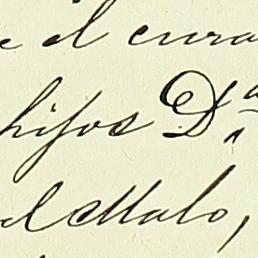 e el cura
hijos D.ª
el Malo,